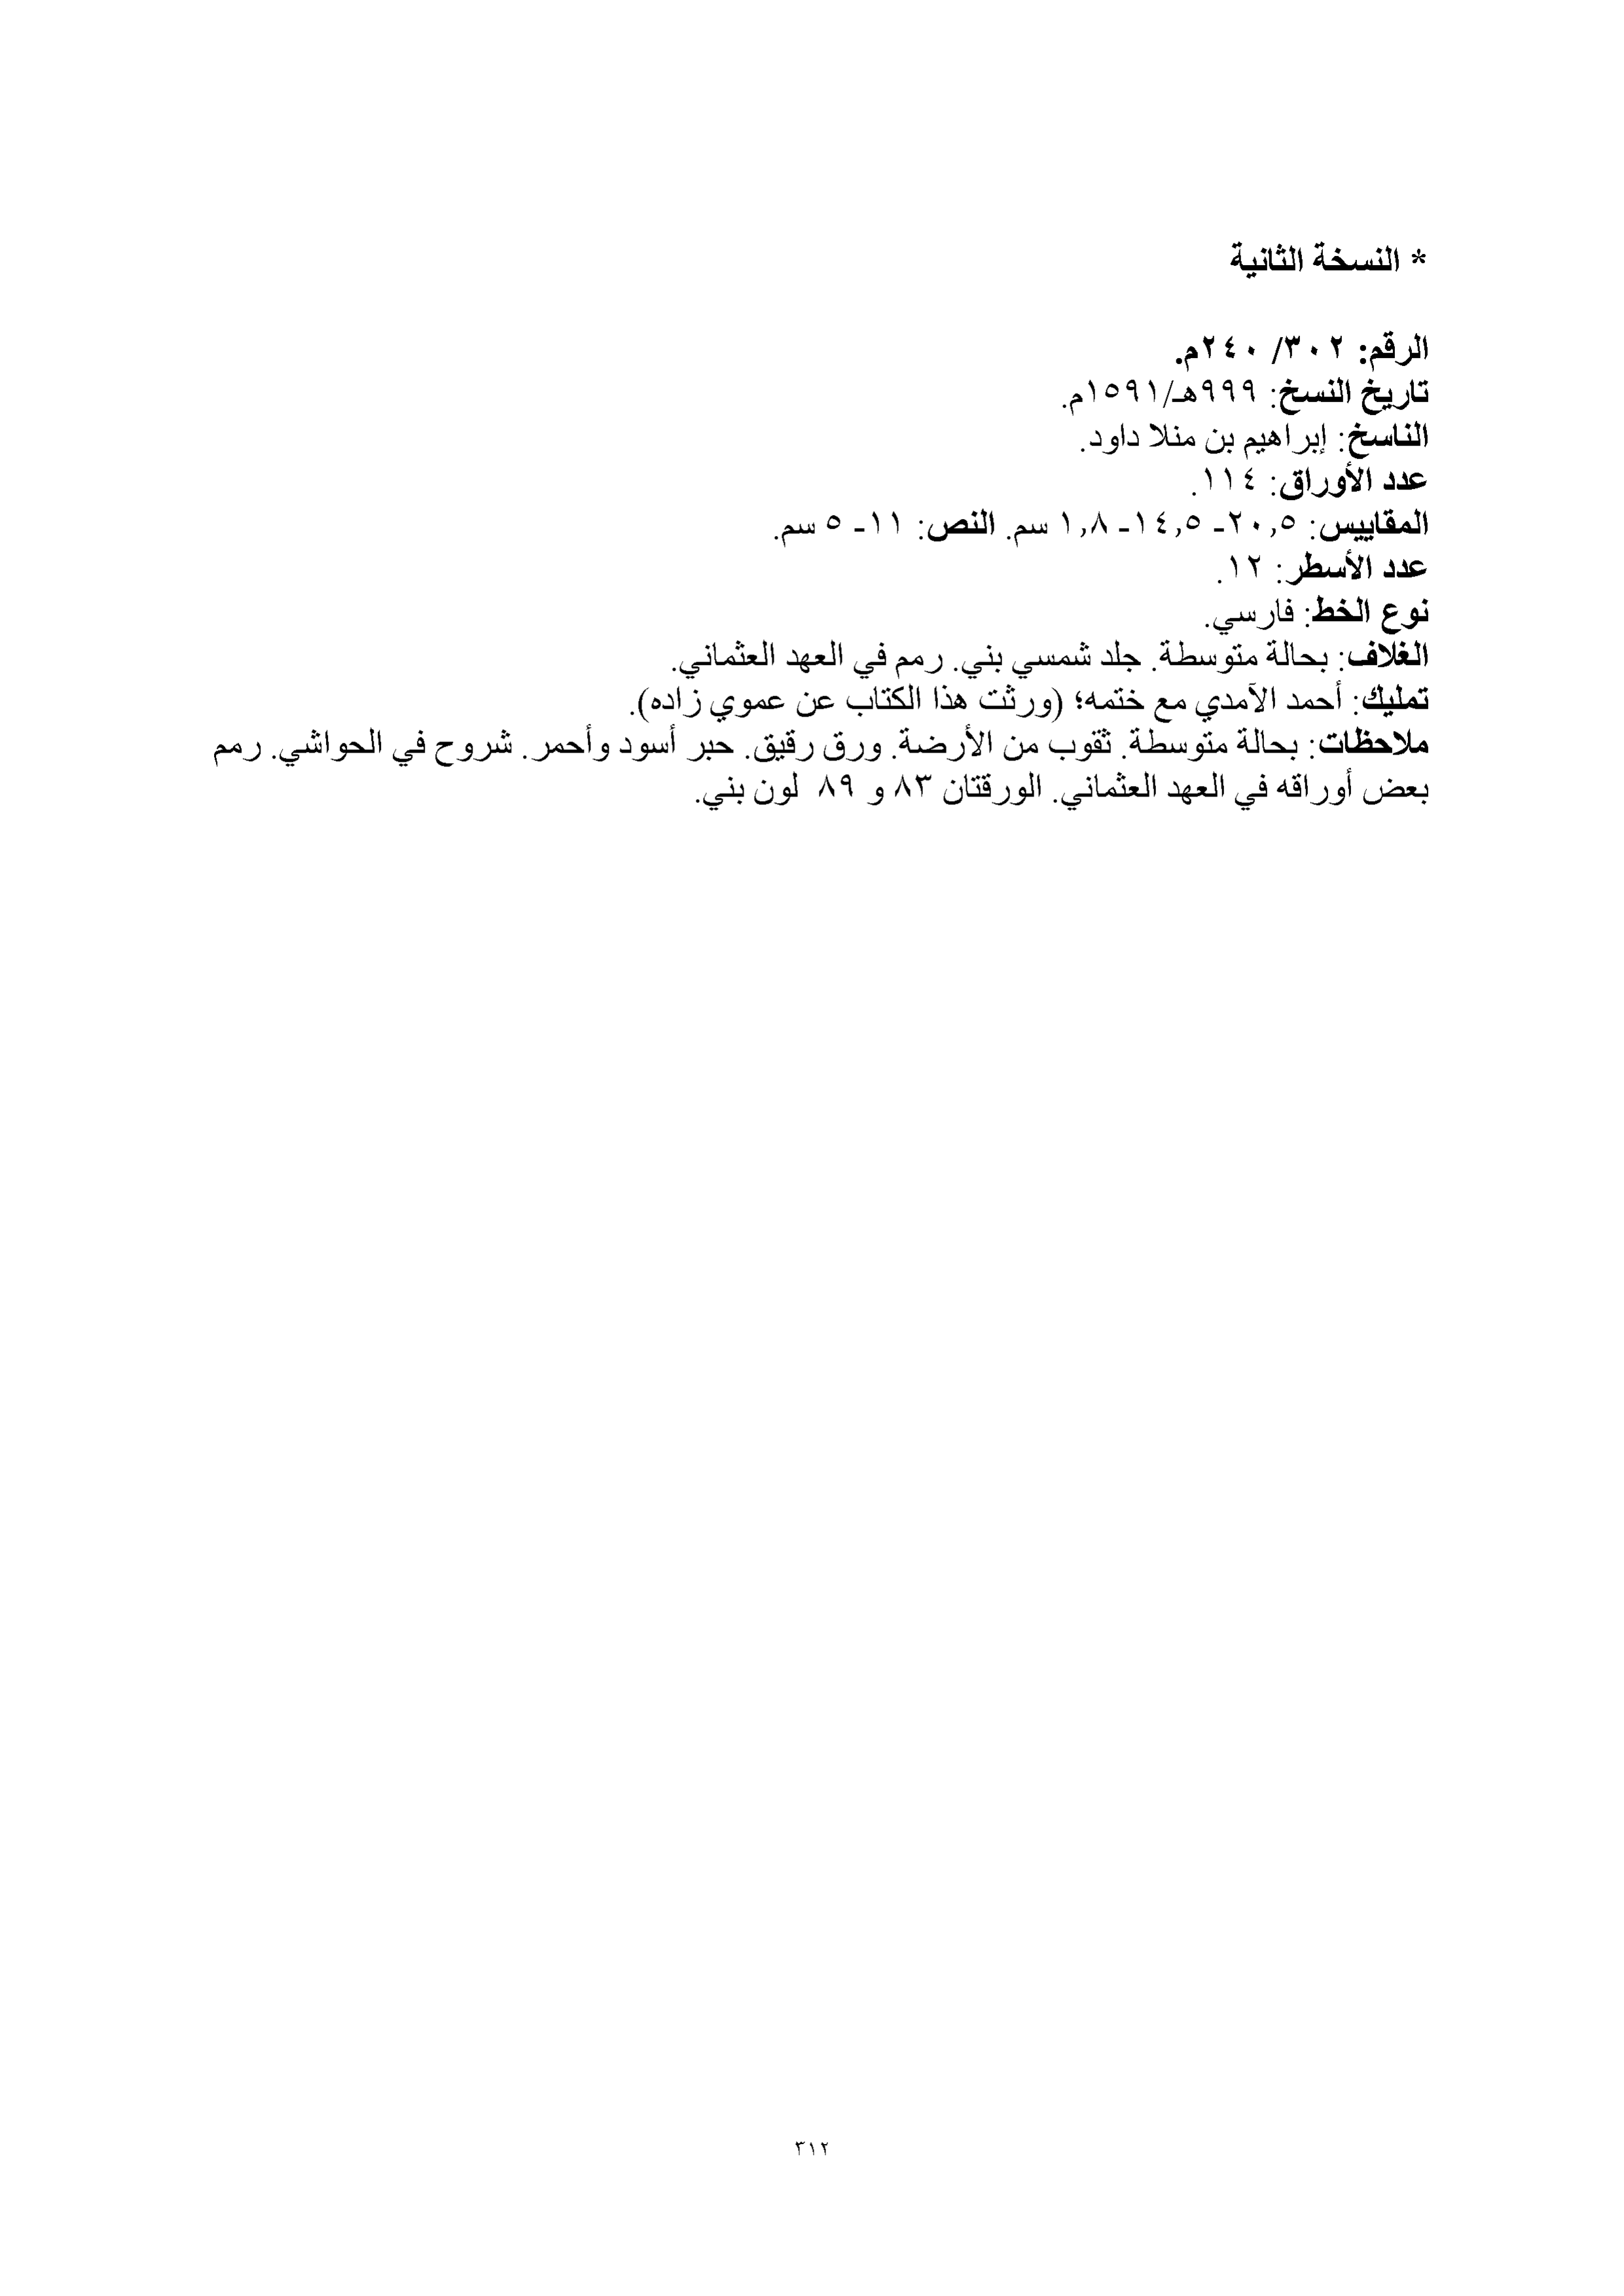 * النسخة الثانية
الرقم: ٣٠٢/ ٢٤٠م.
تاريخ النسخ: ٩٩٩هـ/١٥٩١م.
الناسخ: إبراهيم بن منلا داود.
عدد الأوراق: ١١٤.
المقاييس: ٢٠,٥- ١٤,٥- ١,٨ سم. النص: ١١- ٥ سم.
عدد الأسطر: ١٢.
نوع الخط: فارسي.
الغلاف: بحالة متوسطة. جلد شمسي بني. رمم في العهد العثماني.
تمليك: أحمد الآمدي مع ختمه؛ (ورثت هذا الكتاب عن عموي زاده).
ملاحظات: بحالة متوسطة. ثقوب من الأرضة. ورق رقيق. حبر أسود وأحمر. شروح في الحواشي. رمم
بعض أوراقه في العهد العثماني. الورقتان ٨٣ و ٨٩ لون بني.
٣١٢